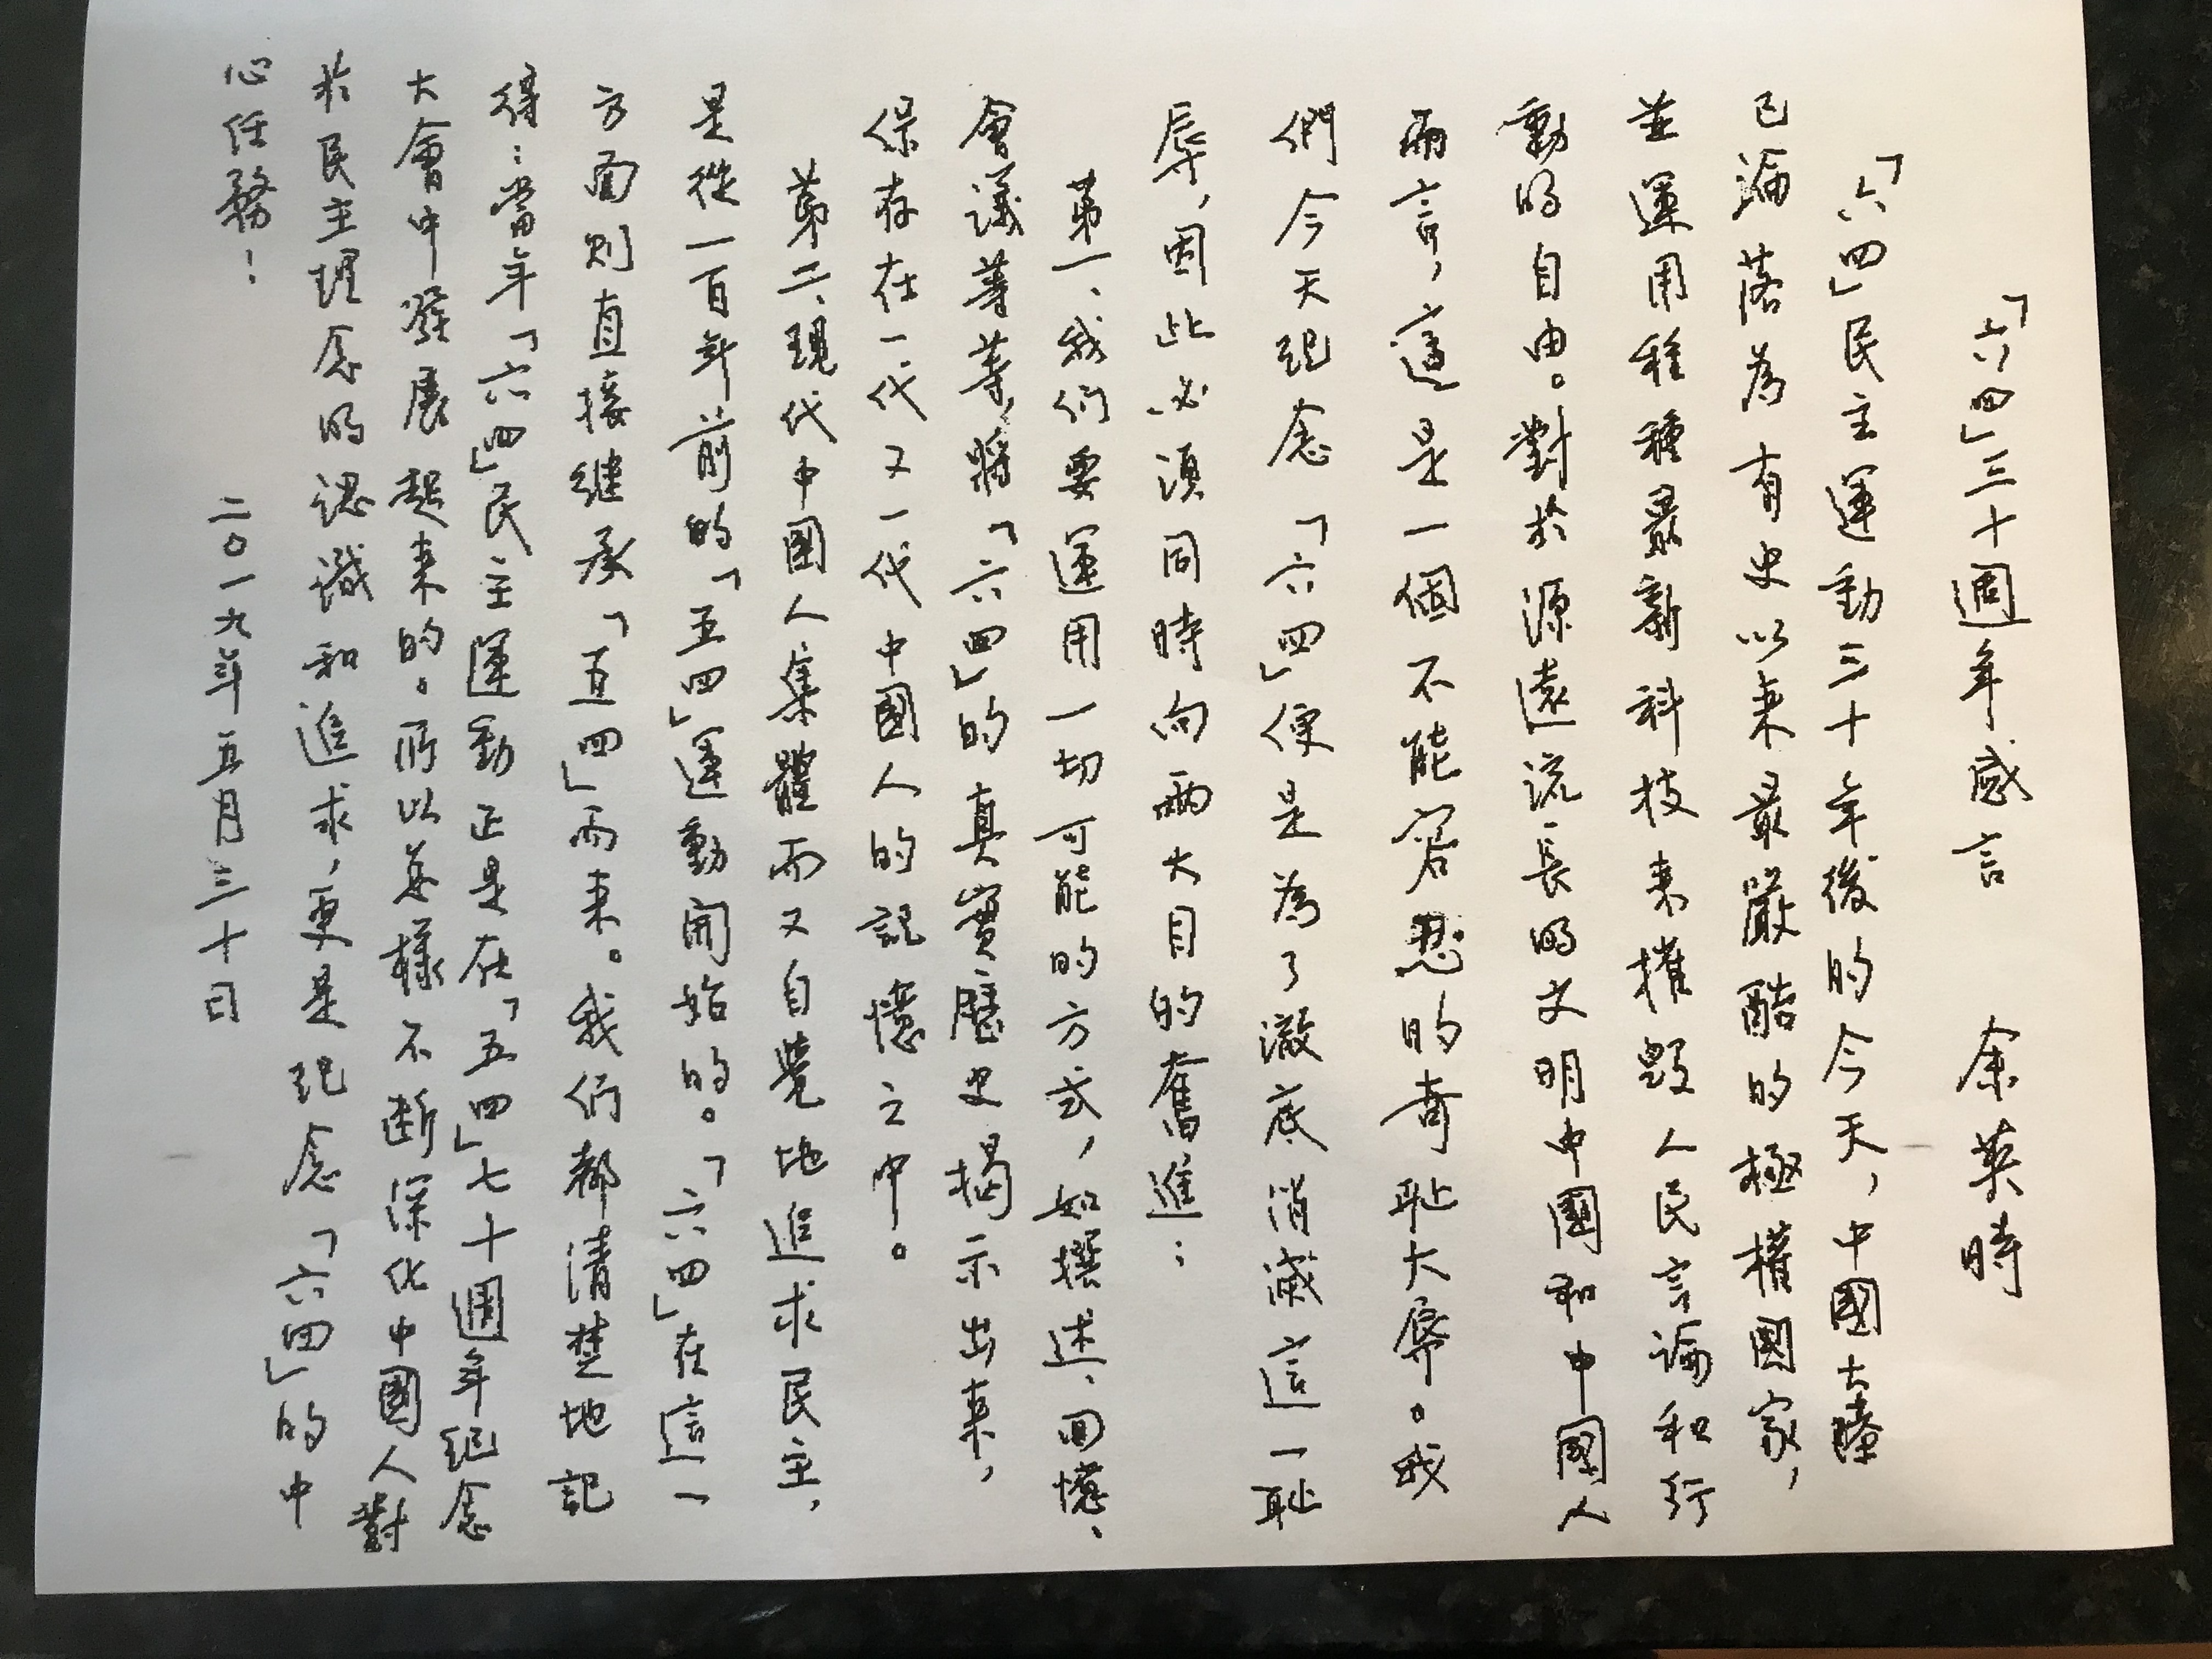 「六四」三十週年感言　余英時
「六四」民主運動三十年後的今天，中國大陸
已淪落為有史以來最嚴酷的極權國家，
並運用種種最新科技來摧毀人民言論和行
動的自由。對於源遠流長的文明中國和中國人
而言，這是一個不能容忍的奇恥大辱。我
們今天紀念「六四」便是為了澈底消滅這一恥
辱，因此必須同時向兩大目的奮進：
第一、我们要運用一切可能的方式，如撰述、回憶、
會議等等，將「六四」的真實歷史揭示出來，
保存在一代又一代中國人的記憶之中。
第二、現代中國人集體而又自覺地追求民主，
是從一百年前的「五四」運動開始的。「六四」在這一
方面則直接继承「五四」而来。我们都清楚地記
得：當年「六四」民主運動正是在「五四」七十週年紀念
大會中發展起来的。所以怎樣不断深化中國人對
於民主理念的認識和追求，更是紀念「六四」的中
心任務！
二〇一九年五月三十日